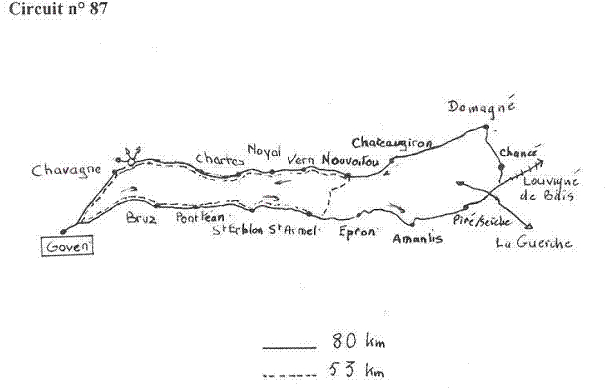 Circuit n° 87
Domagné
Chateaugiron
Noyal
Chartres
Vern
Nouvoitou
Chancé
Chavagne
Louvigné
de Bais
Bruz
Pontléan
St Erblon
St Armel
Epron
Amanlis
Piré/seiche
La Guerche
Goven
80 km
53 km